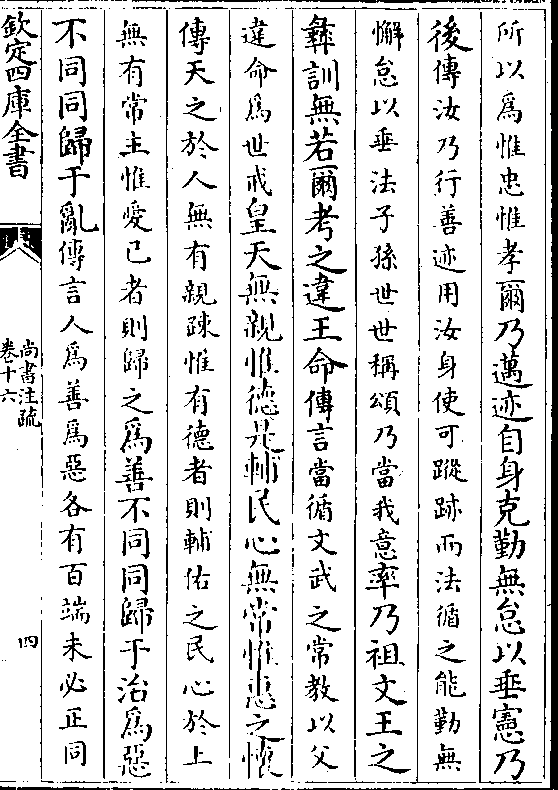 所以爲惟忠惟孝爾乃邁迹自身克勤無怠以垂憲乃
後傳汝乃行善迹用汝身使可蹤跡而法循之能勤無
懈怠以垂法子孫世世稱頌乃當我意率乃祖文王之
彝訓無若爾考之違王命傳言當循文武之常教以父
違命爲世戒皇天無親惟德是輔民心無常惟惠之懷
傳天之於人無有親踈惟有德者則輔佑之民心於上
無有常主惟愛已者則歸之爲善不同同歸于治爲惡
不同同歸于亂傳言人爲善爲惡各有百端未必正同
欽定四庫全書
尚書注疏
卷十六
四